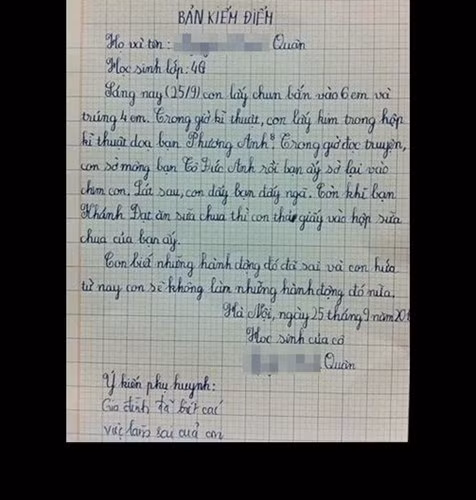 BẢN KIỂM ĐIỂM
Họ và tên: Quân
Học sinh lớp: 4G
Sáng nay (25/9) con lấy chun bắn vào 6 em và
trúng 4 em. Trong giờ kĩ thuật, con lấy kim trong hộp
kĩ thuật dọa bạn Phương Anh B. Trong giờ đọc truyện,
con sờ mông bạn Tô Đức Anh rồi bạn ấy sờ lại vào
chim con. Lát sau, con đẩy bạn đấy ngã. Còn khi bạn
Khánh Đạt ăn sữa chua thì con thả giấy vào hộp sữa
chua của bạn ấy.
Con biết những hành động đó đã sai và con hứa
từ nay con sẽ không làm những hành động đó nữa.
Hà Nội, ngày 25 tháng 9 năm 201
Học sinh của cô
Quân
Ý kiến phụ huynh:
Gia đình đã biết cái
việc làm sai của con